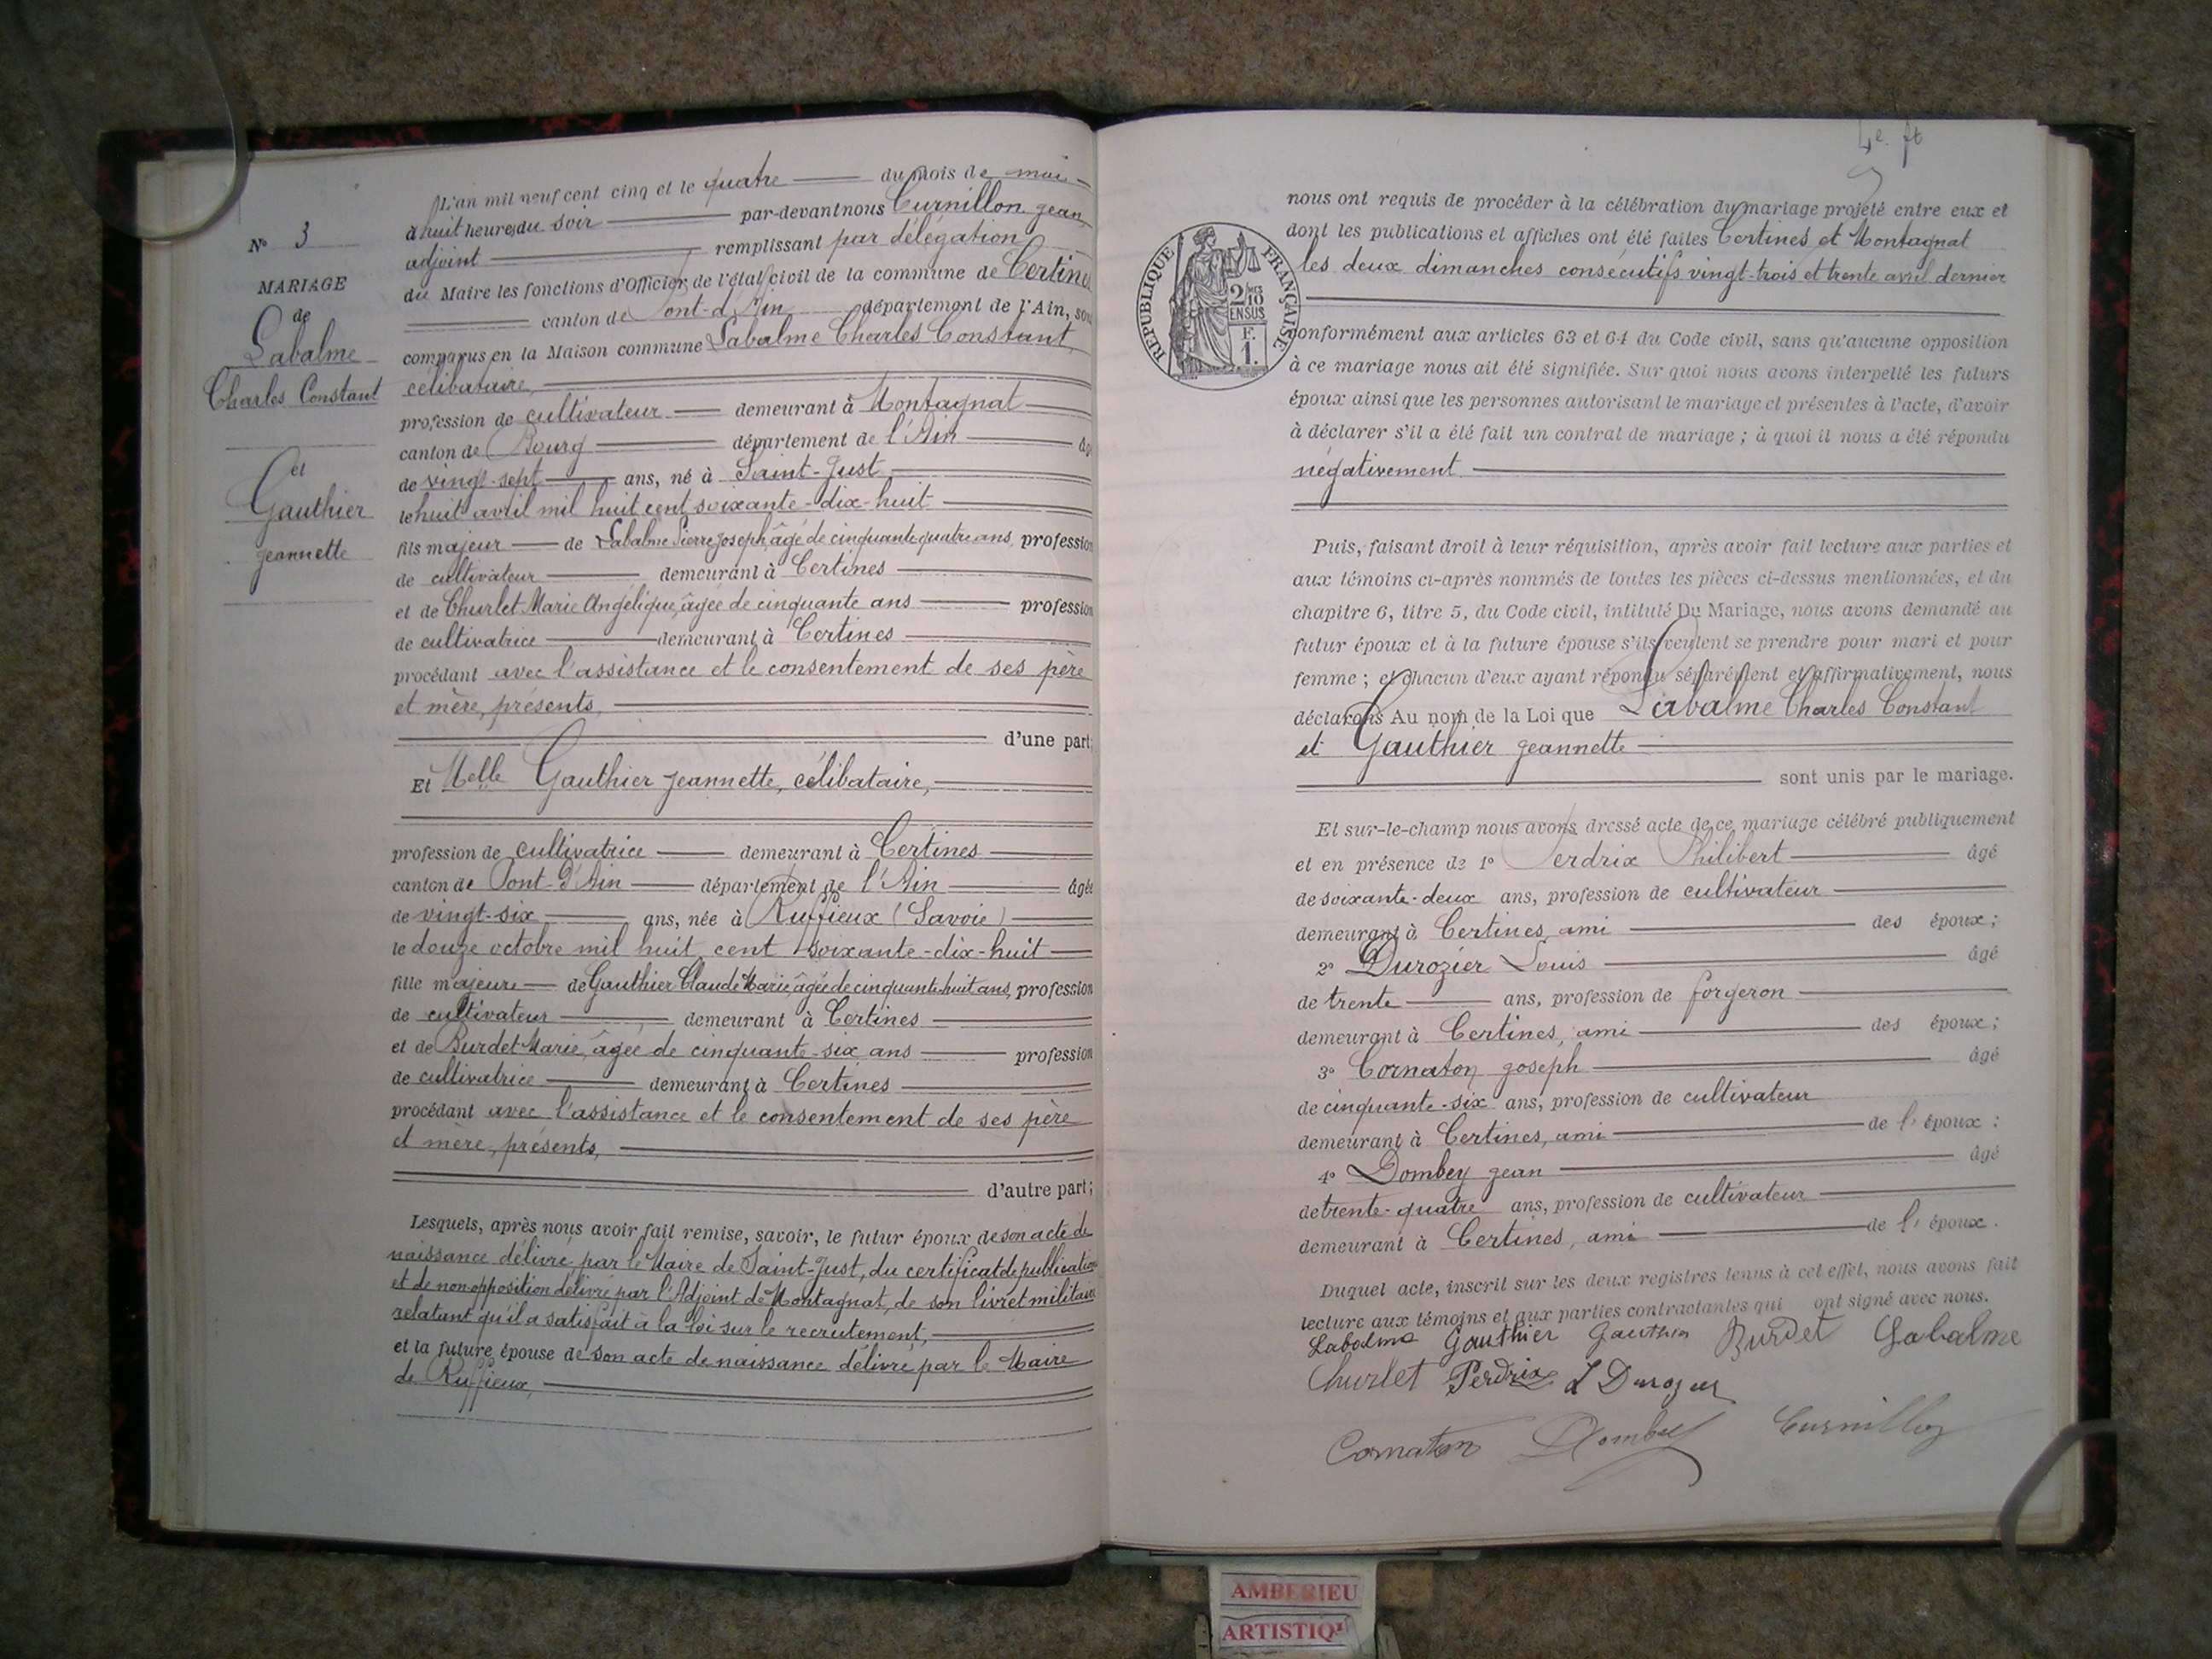 N° 3
MARIAGE
de
Labalme
Charles Constant
et
Gauthier
jeannette
L'an mil neuf cent cinq et le quatre du mois de mai
à huit heures du soir par-devant nous Curnillon jean
adjoint remplissant par délégation
du Maire les fonctions d'Officier de l'état civil de la commune de Certines
canton de Pont-d'Ain département de l'Ain, sont
comparus en la Maison commune Labalme Charles Constant
célibataire,
profession de cultivateur demeurant à Montagnat
canton de Bourg département de l'Ain âgé
de vingt-sept ans, né à Saint-Just
le huit avril mil huit cent soixante-dix-huit
fils majeur de Labalme Pierre Joseph, âgé de cinquante quatre ans, profession
de cultivateur demeurant à Certines
et de Churlet Marie Angélique, âgée de cinquante ans profession
de cultivatrice demeurant à Certines
procédant avec l'assistance et le consentement de ses père
et mère, présents,
d'une part;
Et Melle Gauthier jeannette, célibataire,
profession de cultivatrice demeurant à Certines
canton de Pont-d'Ain département de l'Ain âgée
de vingt-six ans, née à Ruffieux (Savoie)
le douze octobre mil huit cent soixante-dix-huit
fille majeure de Gauthier Claude Marie, âgée de cinquante-huit ans, profession
de cultivateur demeurant à Certines
et de Burdet Marie, âgée de cinquante-six ans profession
de cultivatrice demeurant à Certines
procédant avec l'assistance et le consentement de ses père
et mère, présents,
d'autre part;
Lesquels, après nous avoir fait remise, savoir, le futur époux de son acte de
naissance délivré par le Maire de Saint-Just, du certificat de publication
et de non opposition délivré par l'Adjoint de Montagnat, de son livret militaire
relatant qu'il a satisfait à la loi sur le recrutement,
et la future épouse de son acte de naissance délivré par le Maire
de Ruffieux,
RÉPUBLIQUE FRANÇAISE
2/10
EN SUS
F.
1.
nous ont requis de procéder à la célébration du mariage projeté entre eux et
dont les publications et affiches ont été faites Certines et Montagnat
les deux dimanches consécutifs vingt-trois et trente avril dernier
conformément aux articles 63 et 64 du Code civil, sans qu'aucune opposition
à ce mariage nous ait été signifiée. Sur quoi nous avons interpellé les futurs
époux ainsi que les personnes autorisant le mariage et présentes à l'acte, d'avoir
à déclarer s'il a été fait un contrat de mariage ; à quoi il nous a été répondu
négativement
Puis, faisant droit à leur réquisition, après avoir fait lecture aux parties et
aux témoins ci-après nommés de toutes les pièces ci-dessus mentionnées, et du
chapitre 6, titre 5, du Code civil, intitulé Du Mariage, nous avons demandé au
futur époux et à la future épouse s'ils veulent se prendre pour mari et pour
femme ; et chacun d'eux ayant répondu séparément et affirmativement, nous
déclarons Au nom de la Loi que Labalme Charles Constant
et Gauthier jeannette
sont unis par le mariage.
Et sur-le-champ nous avons dressé acte de ce mariage célébré publiquement
et en présence de 1° Perdrix Philibert âgé
de soixante-deux ans, profession de cultivateur
demeurant à Certines, ami des époux ;
2° Durozier Louis âgé
de trente ans, profession de forgeron
demeurant à Certines, ami des époux ;
3° Cornaton joseph âgé
de cinquante-six ans, profession de cultivateur
demeurant à Certines, ami de l' époux :
4° Dombey jean âgé
de trente-quatre ans, profession de cultivateur
demeurant à Certines, ami de l' époux.
Duquel acte, inscrit sur les deux registres tenus à cet effet, nous avons fait
lecture aux témoins et aux parties contractantes qui ont signé avec nous.
Labalme Gauthier Gauthier Burdet Labalme
Churlet Perdrix L Durozier
Cornaton Dombey Curnillon
AMBERIEU
ARTISTIQ